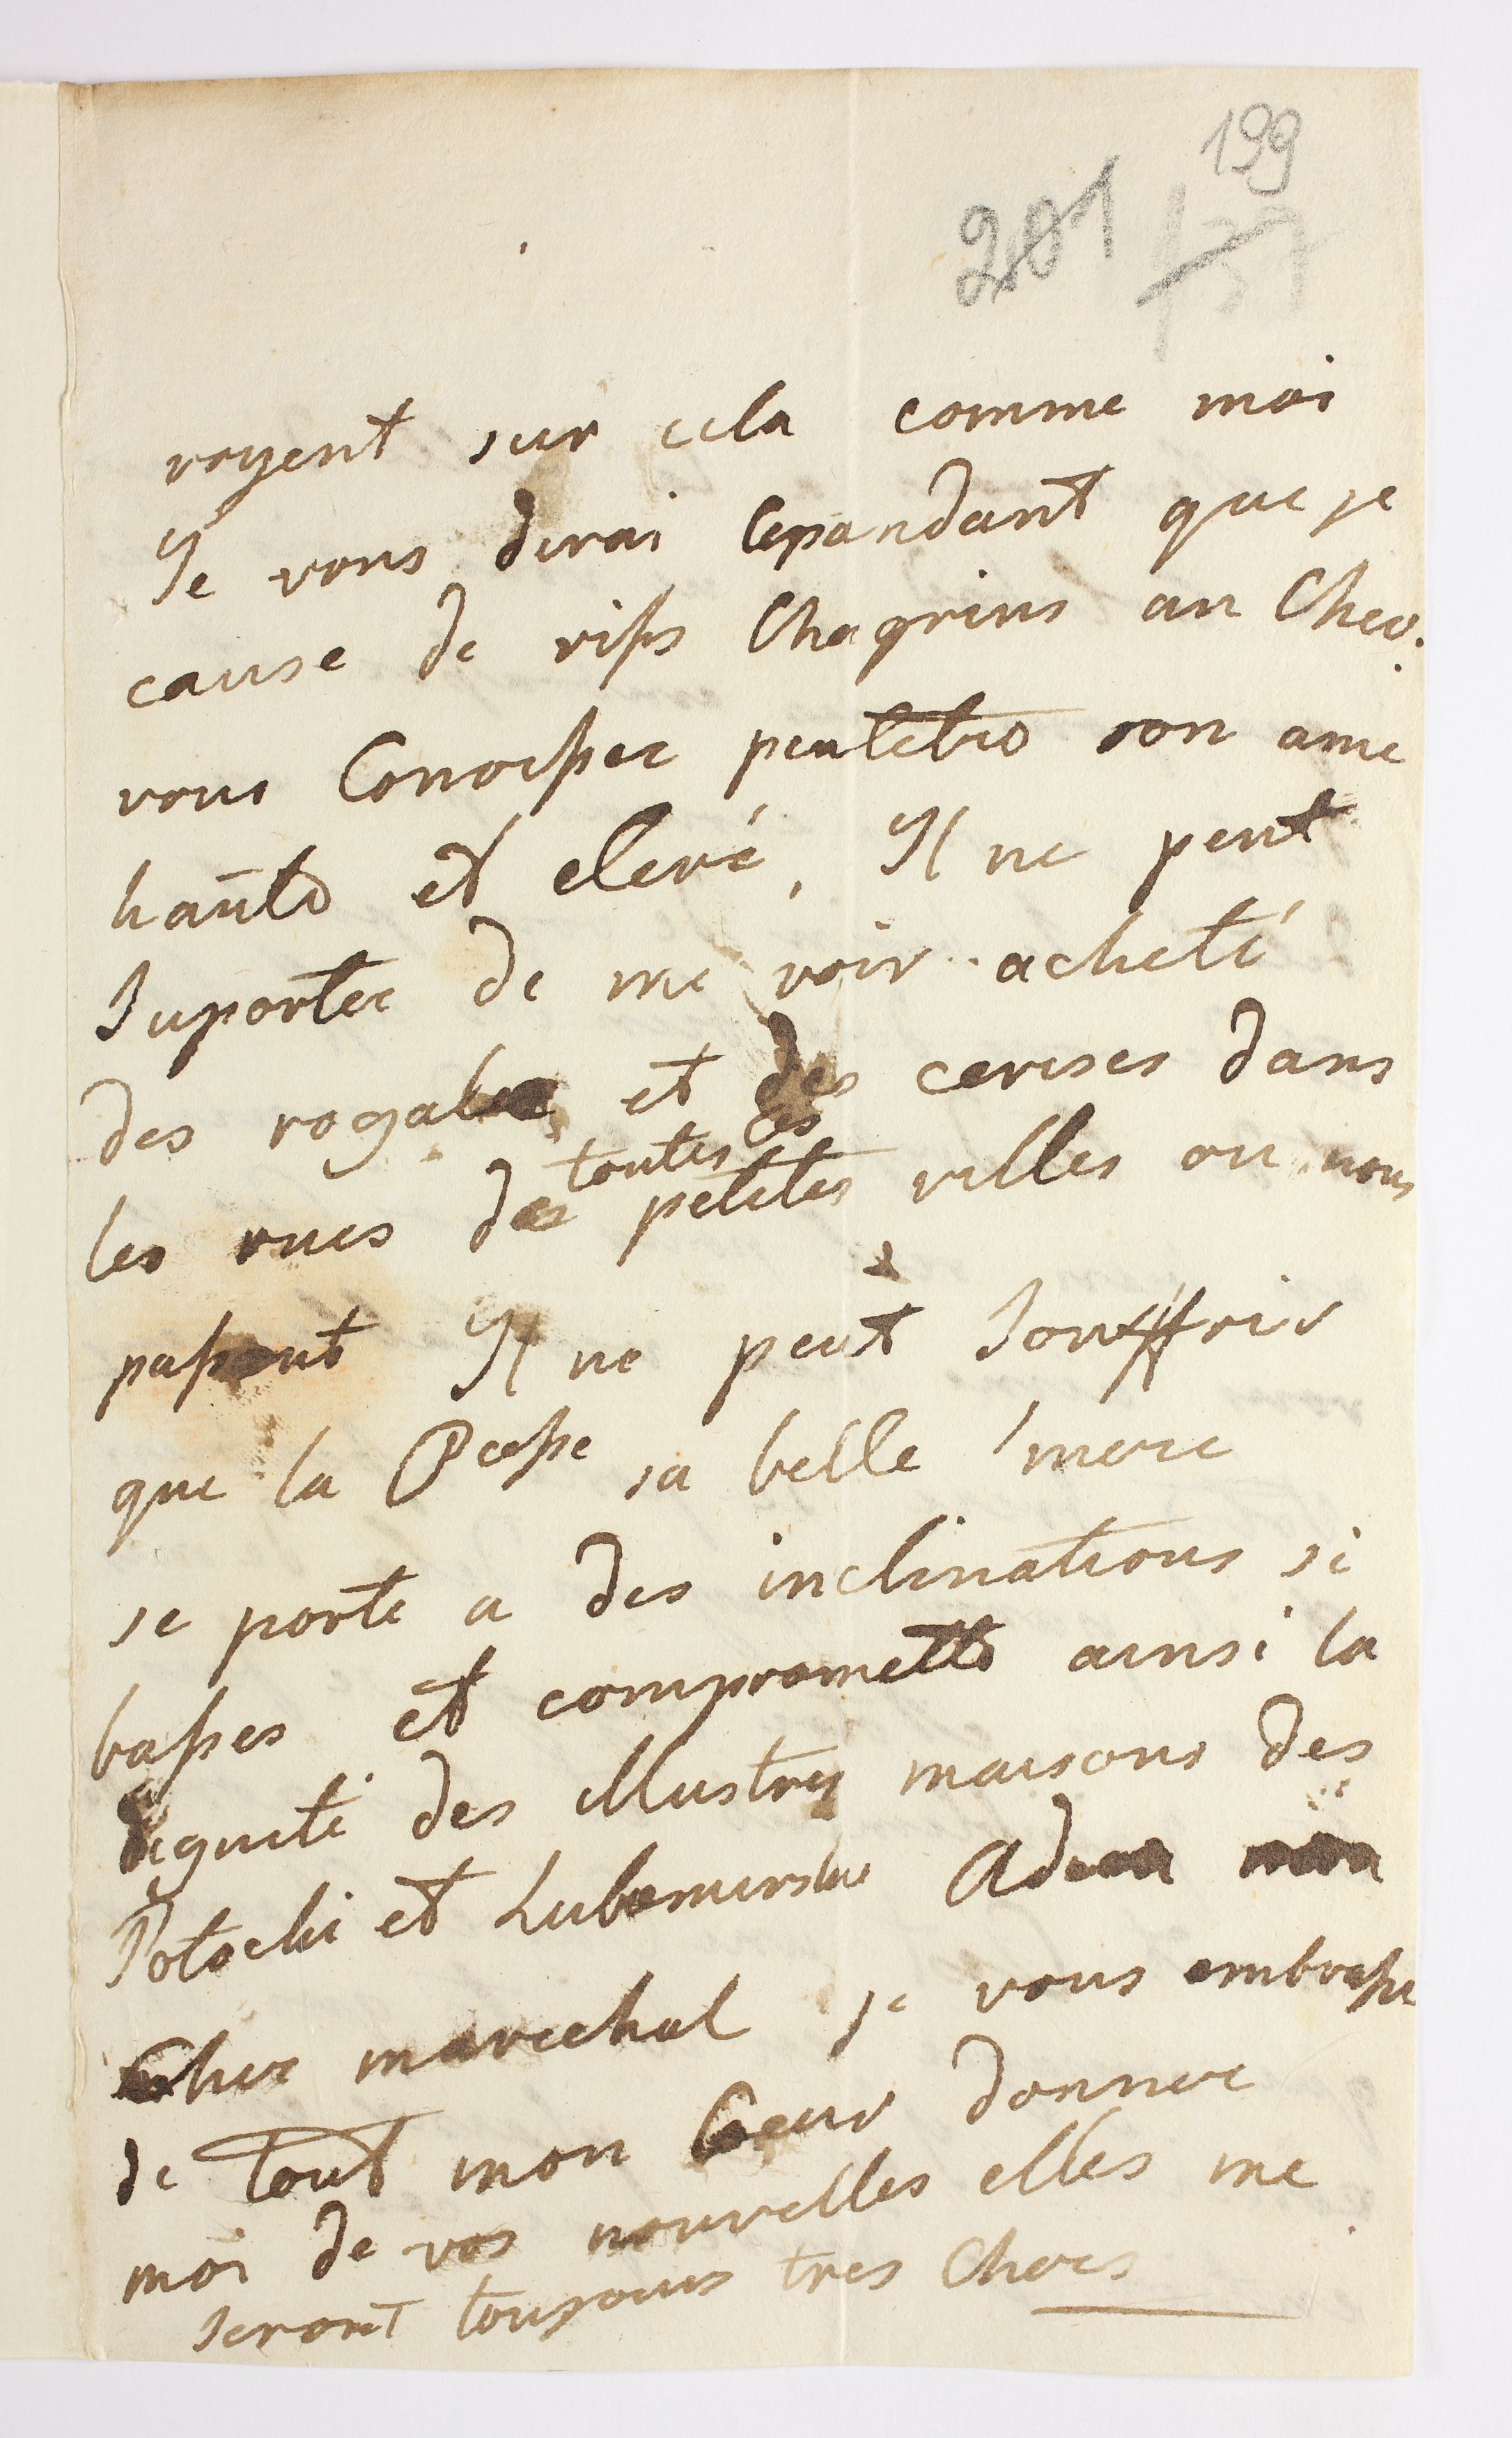 199
201
voyent sur cela comme moi
Je vous dirai Cepandant que je
cause de vifs Chagrins au Chev.
vous Conoisser peutetre son ame
haute et elevé, Il ne peut
suporter de me voir acheté
des rogalki et des cerises dans
toutes les
les rues des petites villes ou nous
passent Il ne peut souffrir
que la Pcesse sa belle mere
se porte a des inclinations si
basses et compromette ainsi la
dignité des illustres maisons des
Potocki et Lubomirski Adieu mon
Cher marechal je vous embrasse
de tout mon Coeur donner
moi de vos nouvelles elles me
seront toujours tres Cheres